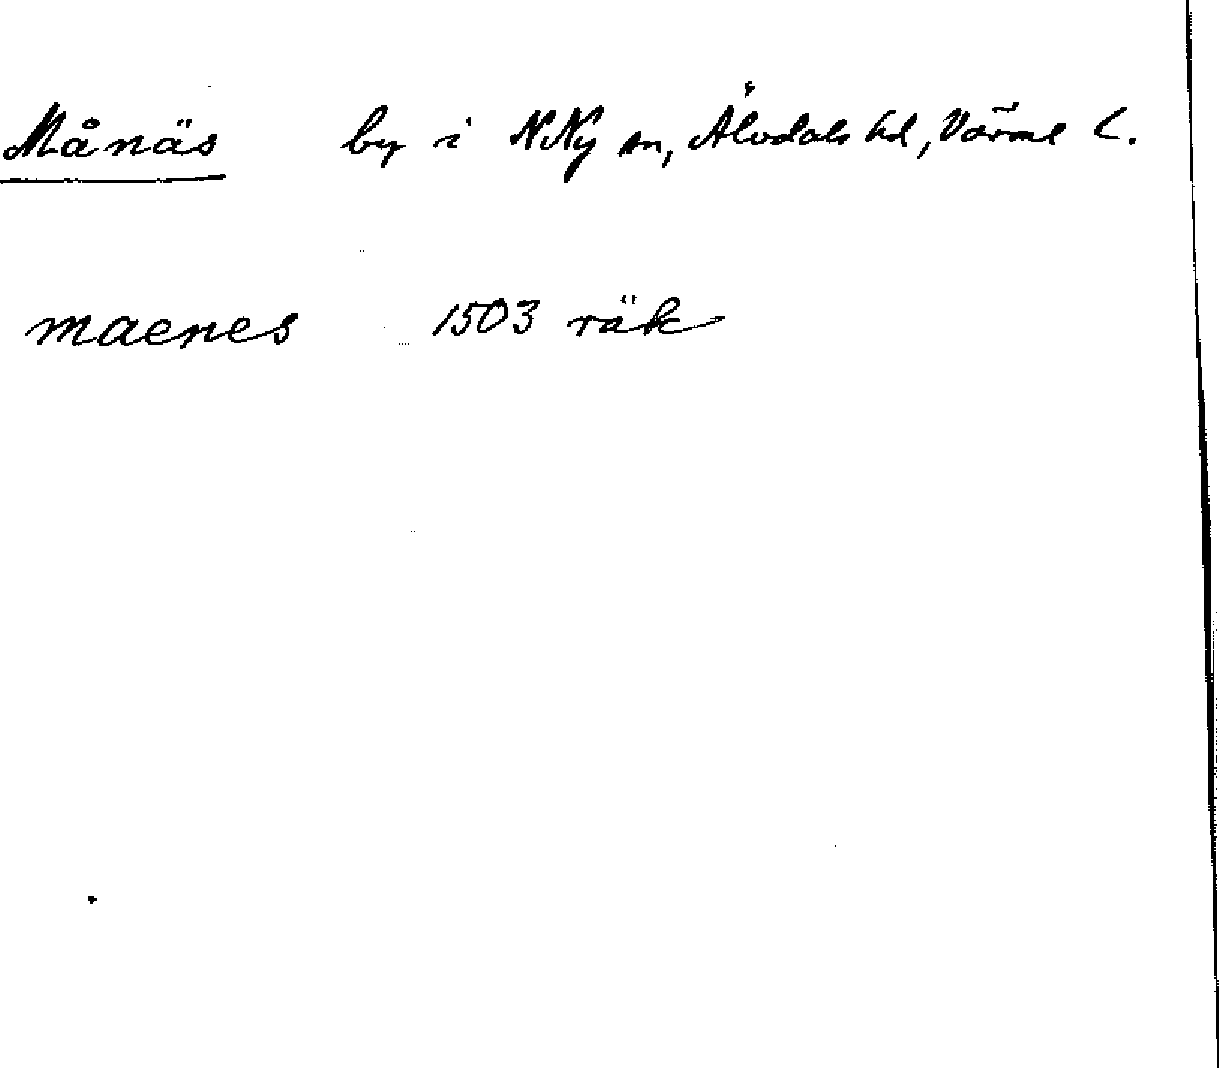 Månäs by i N Ny sn, Älvdals hd, Värml l.
maenes 1503 räk